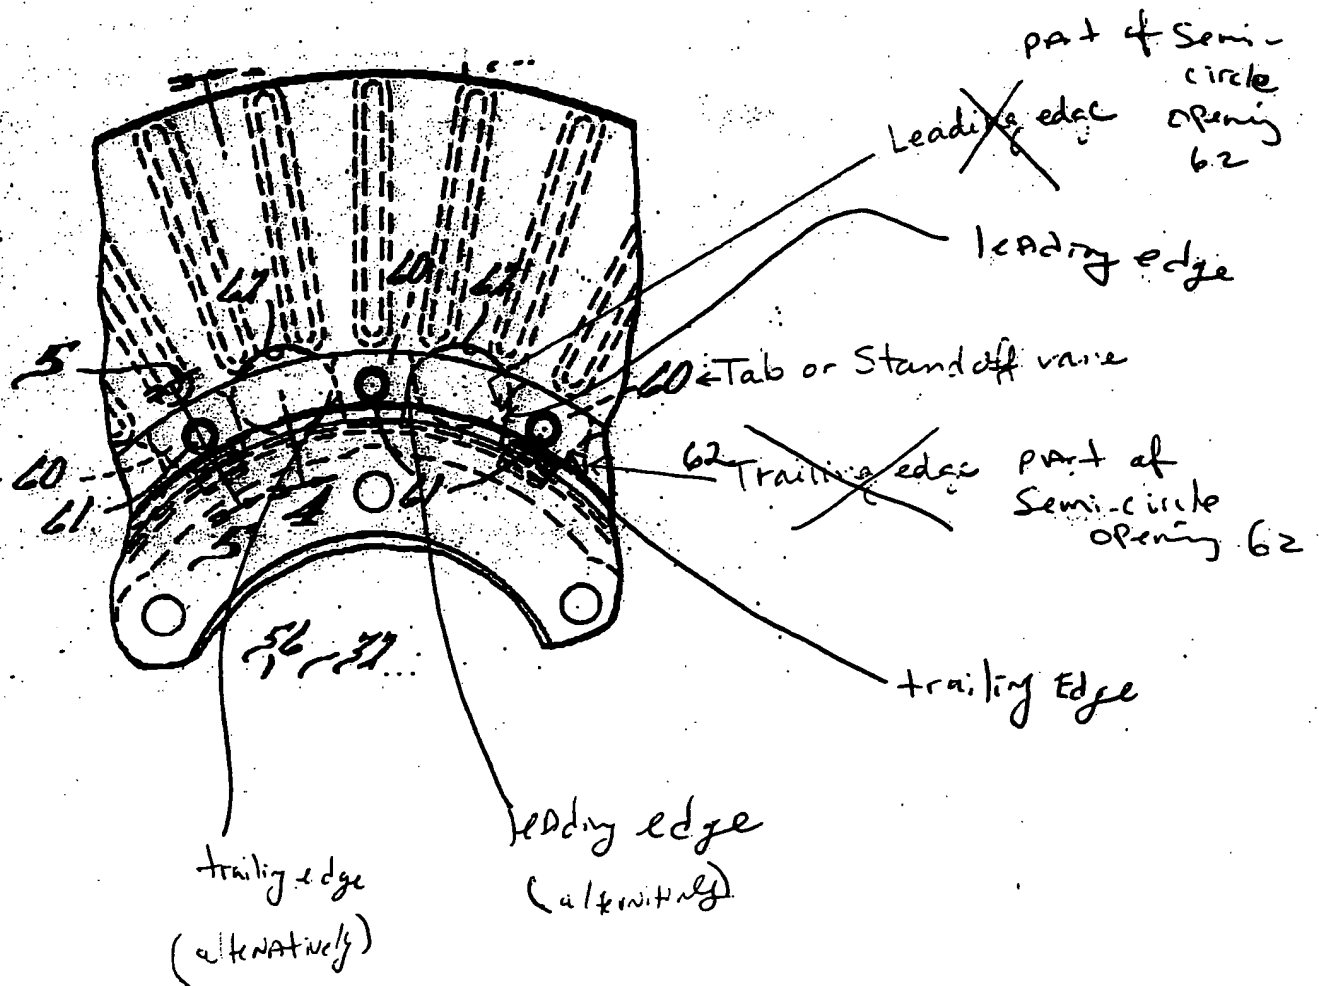 part of Semi-
circle
opening
62
Leading edge
leading edge
62
60
62
5
60 ← Tab or Standoff vane
62 Trailing edge
part of
Semi-circle
opening 62
60
61
61
5
4
56
37
trailing Edge
leading edge
(alternitively)
trailing edge
(alternatively)